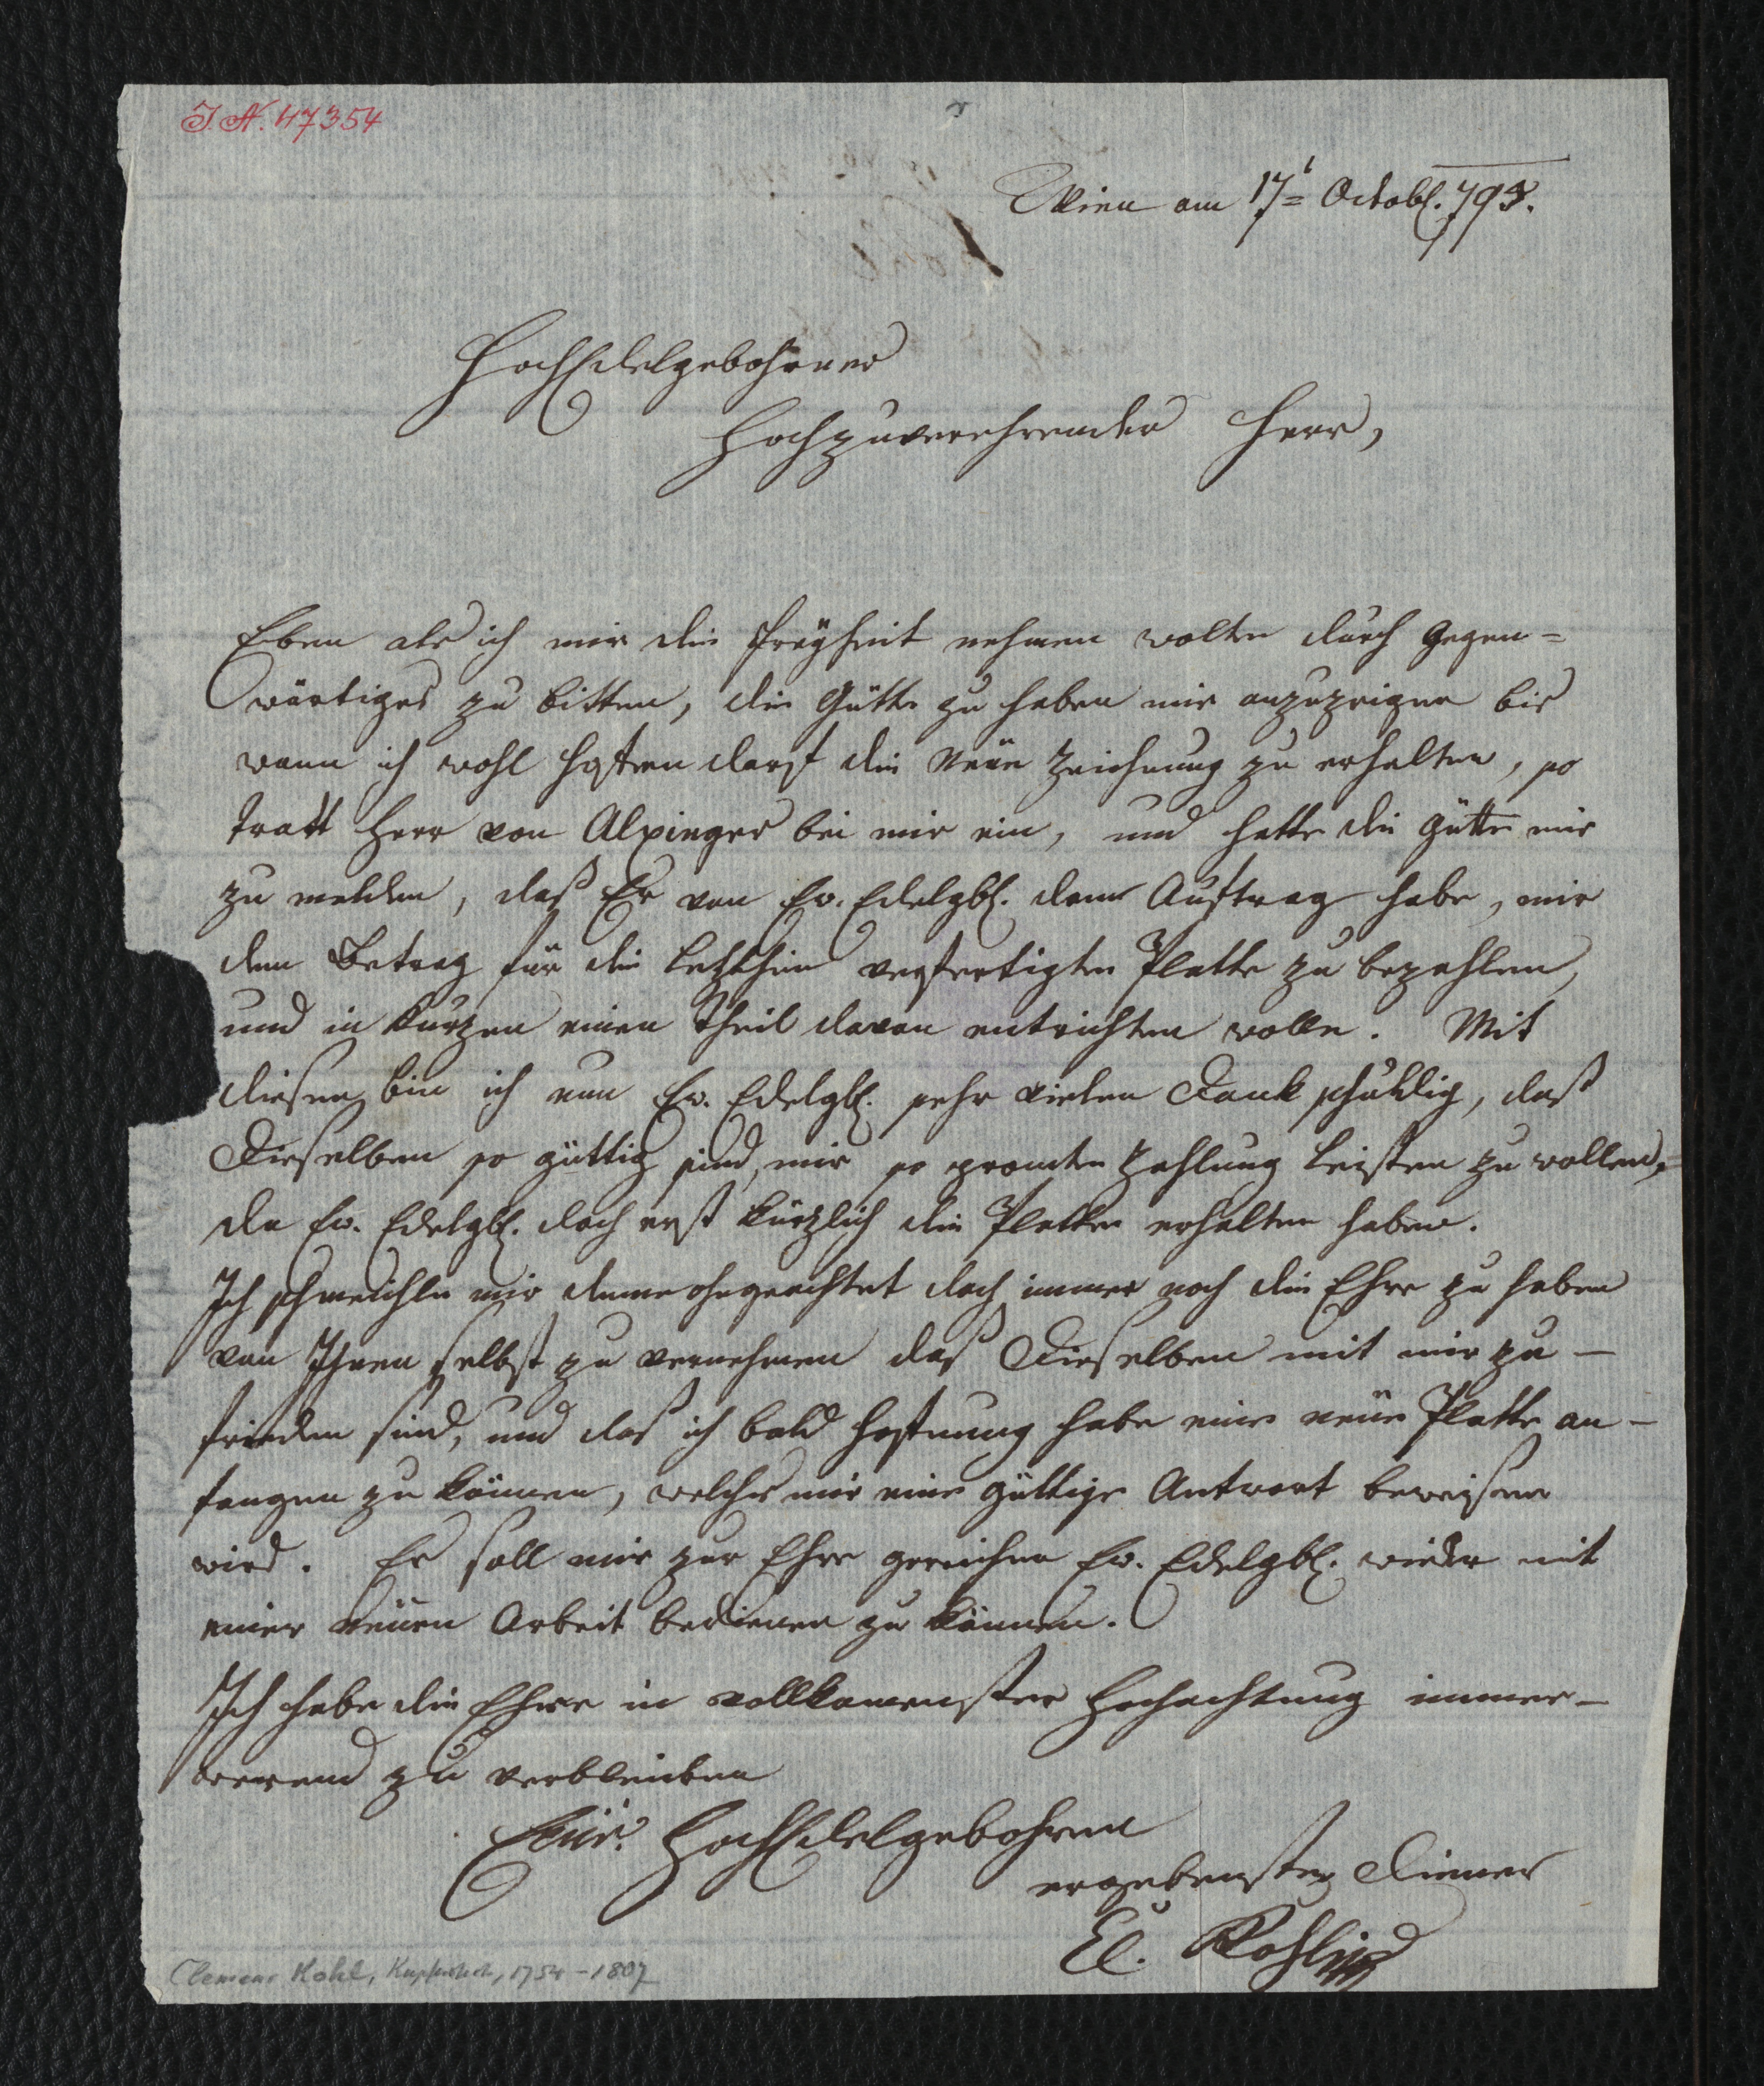 I. N. 47354
Wien am 17t= Octobl. 793.
HochEdelgebohrner
Hochzuverehrender Herr,
Eben als ich mir die freyheit nehmen wolte durch Gegen=
wärtiges zu bitten, die Gütte zu haben mir anzuzeigen bis
wann ich wohl hoffen darf die Neüe Zeichnung zu erhalten, so
tratt Herr von Alxinger bei mir ein, und hatte die Gütte mir
zu melden, daß Er von Ew. Edelgbl. dem Auftrag habe, mir
den Betrag für die letzthin verfertigte Platte zu bezahlen,
und in kurzen einen Theil davon entrichten wolle. Mit
diesem bin ich nun Ew. Edelgbl. sehr vielen Dank schuldig, daß
Dieselben so güttig sind, mir so promte Zahlung leisten zu wollen,
da Ew. Edelgbl. doch erst kürzlich die Platte erhalten haben.
Ich schmeichle mir deme ohngeachtet doch immer noch die Ehre zu haben
von Ihnen selbst zu vernehmen daß Dieselben mit mir zu-
frieden sind, und das ich bald Hoffnung habe eine neüe Platte an-
fangen zu können, welches mir eine güttige Antwort beweisen
wird. Es soll mir zur Ehre gereichen Ew. Edelgbl. wieder mit
einer neüen Arbeit bedienen zu können.
Ich habe die Ehre in vollkomenster Hochachtung immer-
werend zu verbleiben
Eür. HochEdelgebohren
ergebenster Diener
Cl. Kohl
Clemens Kohl, Kupferstech., 1754-1807